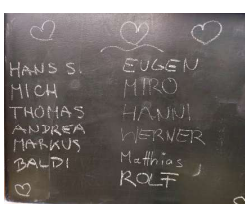 HANS S.
MICH
THOMAS
ANDREA
MARKUS
BALDI
EUGEN
MIRO
HANNI
WERNER
Matthias
ROLF